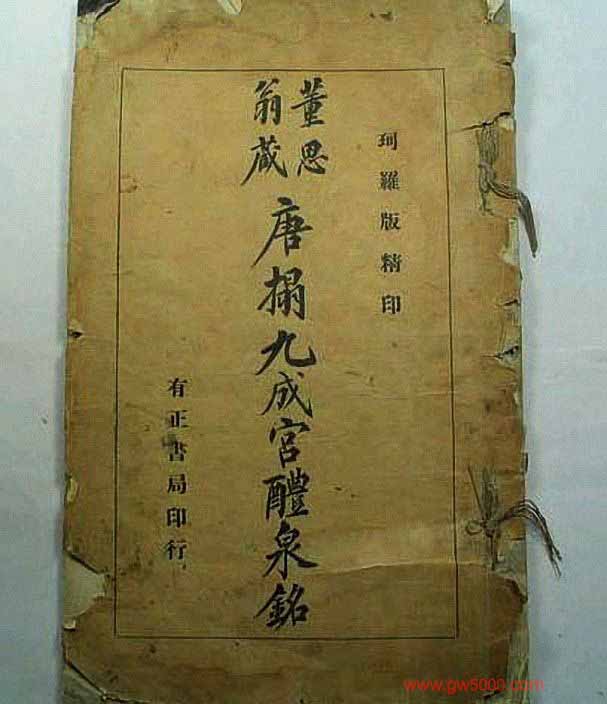 珂羅版精印
董思
翁藏
唐搨九成宮醴泉銘
有正書局印行
www.gw5000.com